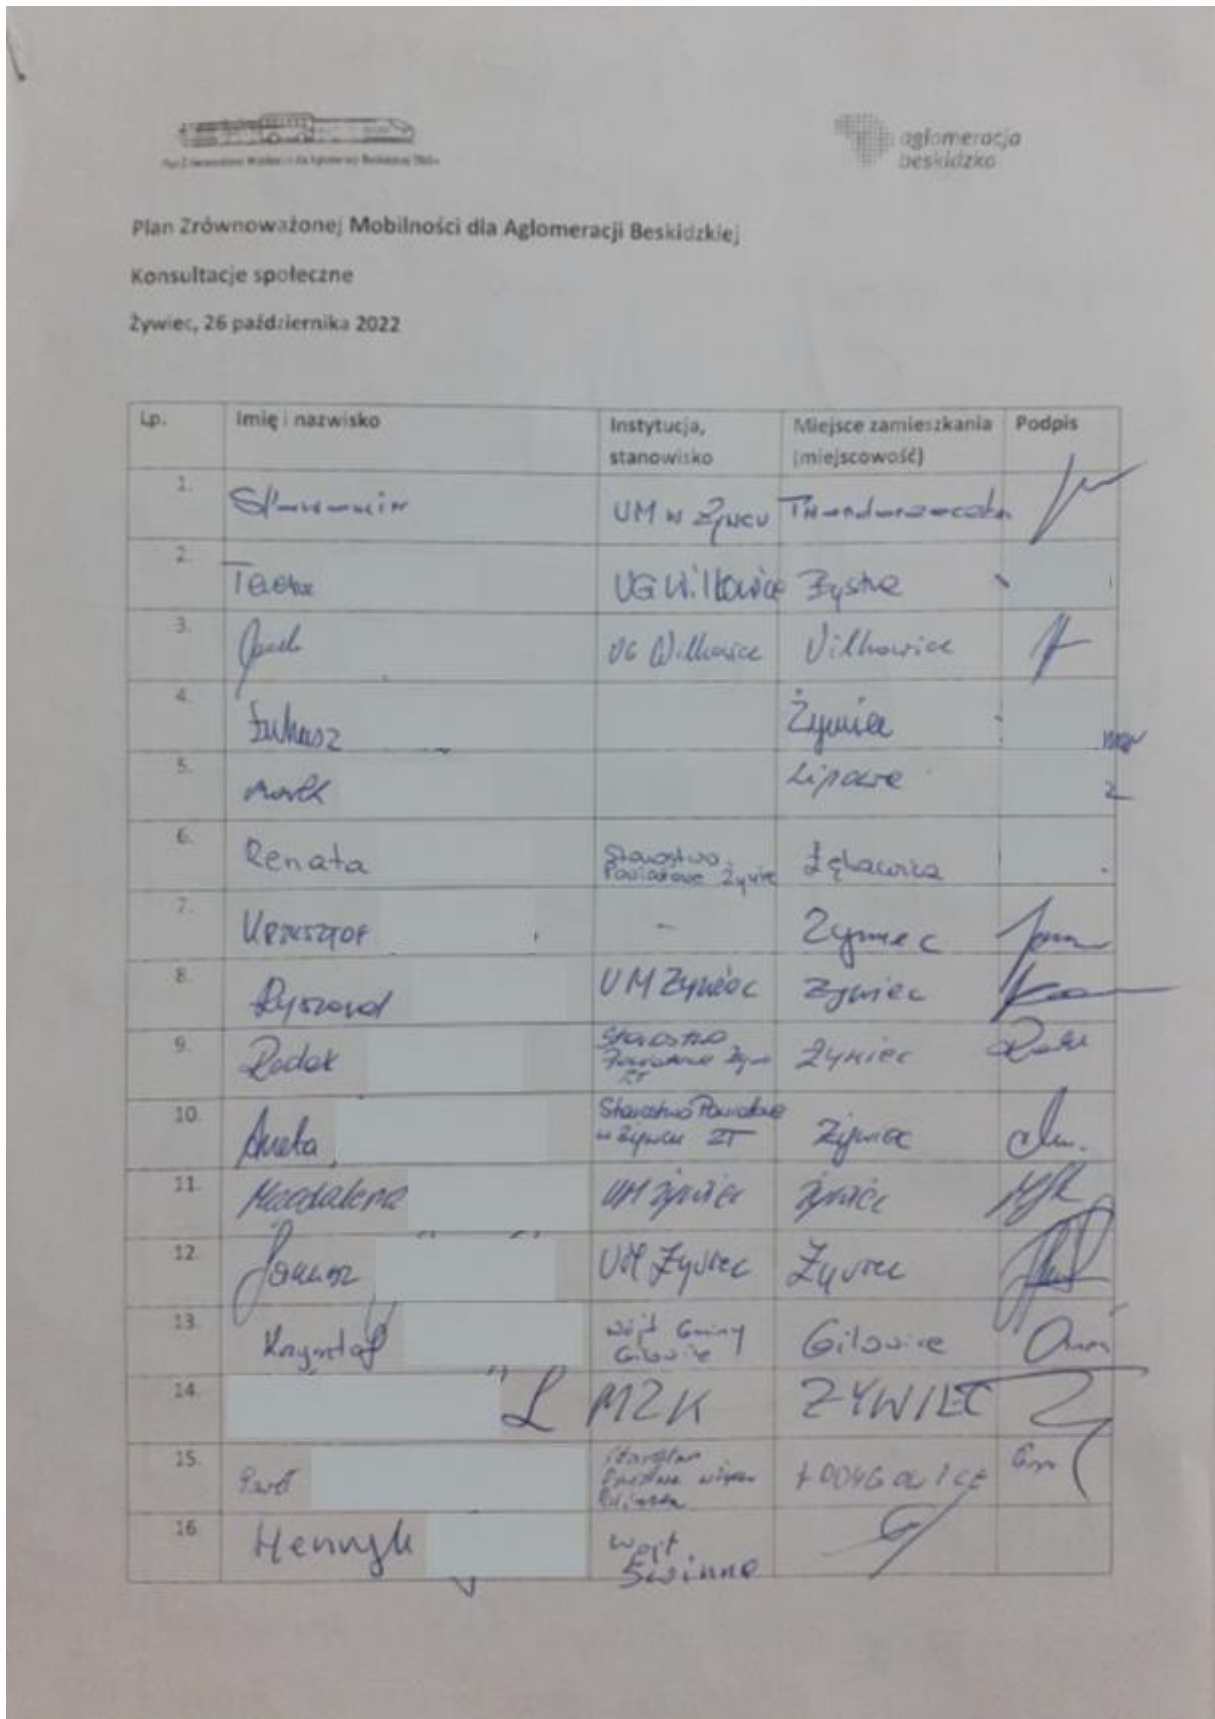 aglomeracja
beskidzka
Plan Zrównoważonej Mobilności dla Aglomeracji Beskidzkiej
Konsultacje społeczne
Żywiec, 26 października 2022
Lp. Imię i nazwisko Instytucja, stanowisko Miejsce zamieszkania (miejscowość) Podpis
1. UM w Żywcu
2. UG Wilkowice Bystra
3. Jacek UG Wilkowice Wilkowice
4. Łukasz Żywiec
5. Marek Lipowa
6. Renata Starostwo Powiatowe Żywiec Łękawica
7. Krzysztof - Żywiec
8. Ryszard UM Żywiec Żywiec
9. Radek Starostwo Żywiec
10. Aneta Starostwo Powiatowe w Żywcu ZT Żywiec
11. Magdalena UM Żywiec Żywiec
12. Janusz UM Żywiec Żywiec
13. Krzysztof Wójt Gminy Gilowice Gilowice
14. MZK ŻYWIEC
15. ŁODYGOWICE
16 Henryk Wójt Świnna